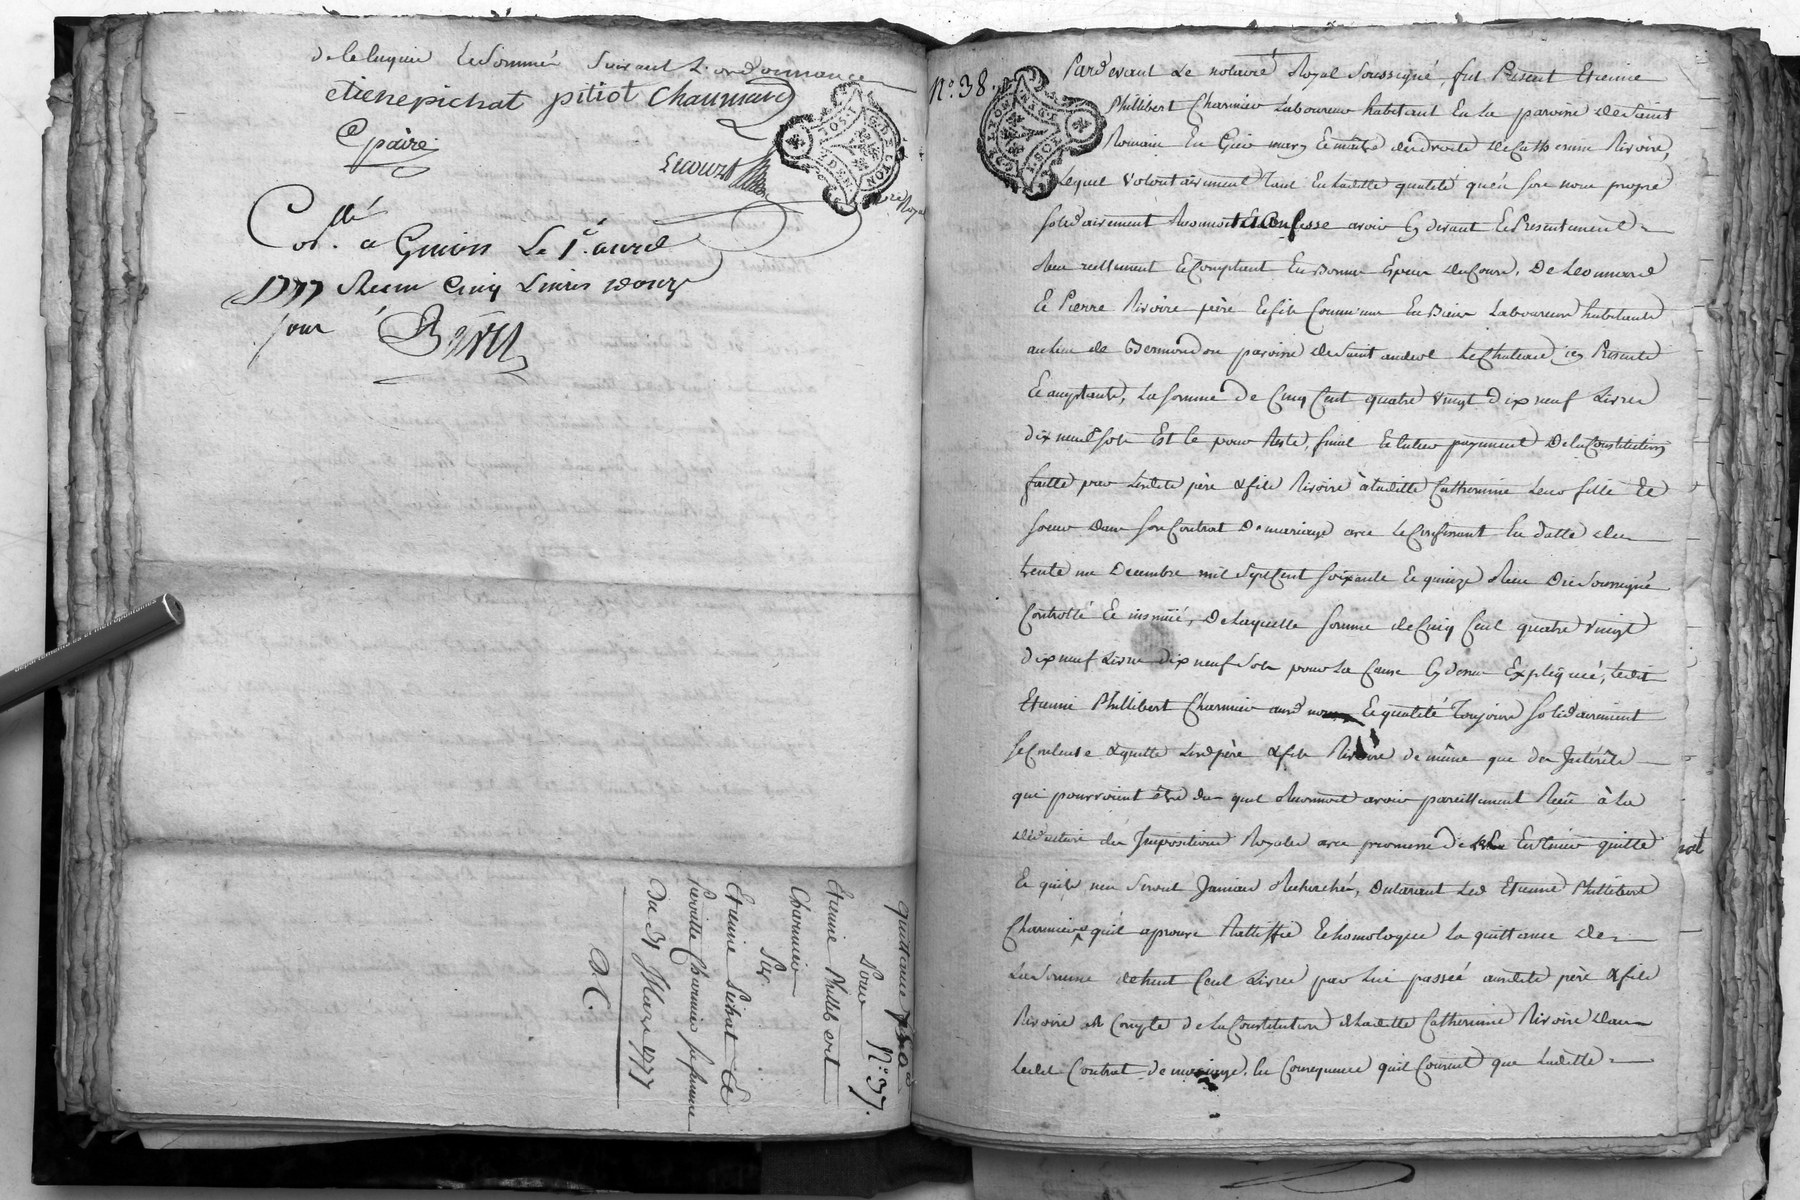 de le Enquis le Sommé Suivant L'ordonnance
etienepichat pitiot Chaumard
Epaire
Lecourt
nre Royal
Collé
a Givors Le 1er avril
1777 Recu Cinq Livres douze
sous
Quittance 750#
Pour N°. 37.
Etienne Phillibert
Charmier
Par
Etienne Pichat Et
Pierrette Charmier sa femme
Du 31 Mars 1777
D. C.
N°. 38.
Pardevant Le notaire Royal Soussigné, fut Présent Etienne
Phillibert Charmier Laboureur habitant En La paroisse de Saint
Romain En Gier mary Et maître des droits de Catherine Rivoire,
Lequel volontairement tant En ladite qualité qu'en son nom propre
solidairement Reconnoit Et Confesse avoir Cy devant Et Présentement
Reçu réellement Et Comptant En Bonnes Espèces du Cours, De Leonnard
Et Pierre Rivoire père Et fils Communs En Biens Laboureurs habitants
au lieu de paroisse de Saint andeol Le Chateau, icy Présents
Et acceptants, La somme De Cinq Cent quatre vingt dix neuf Livres
dix neuf sols Et Ce pour Reste, final Et Entier payement De la Constitution
faitte par Lesdits père & fils Rivoire à Laditte Catherinne Leur fille Et
soeur dans Son Contrat De mariage avec Le Confessant En datte du
trente un Decembre mil Sept Cent Soixante Et quinze Reçu Du Soussigné
Controllé Et insinué, De Laquelle Somme de Cinq Cent quatre Vingt
dix neuf Livres dix neuf Sols pour La Cause Cy dessus Expliquée, Ledit
Etienne Phillibert Charmier auxd noms Et qualité Toujours Solidairement
Se Contente & quitte Lesd père & fils Rivoire de même que des Intérêts
qui pourroient être dus qu'il Reconnoit avoir pareillement Reçu à la
déduction des Impositions Royales avec promesse de Les En tenir quitte
Et qu'ils n'en Seront Jamais Recherchés, Déclarant Led Etienne Phillibert
Charmier qu'il aprouve Rattiffie Et homologue La quittance De
La Somme de huit Cent Livres par Lui passée auxdits père & fils
Rivoire à Compte de La Constitution de Laditte Catherinne Rivoire dans
Ledit Contrat de mariage. En Conséquence qu'il Consent que Laditte